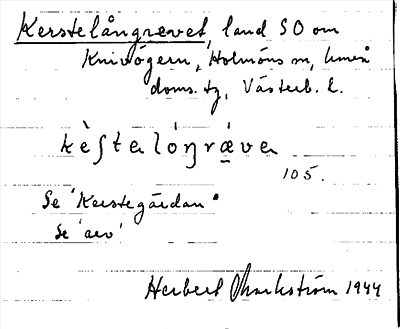 Kerstelångrevet, land SO om
Knivögern, Holmöns sn, Umeå
doms. tg, Västerb. l.
kèʃtalòŋrǽva
105.
Se "Kerstegårdan"
Se 'rev'
Herbert Markström 1944